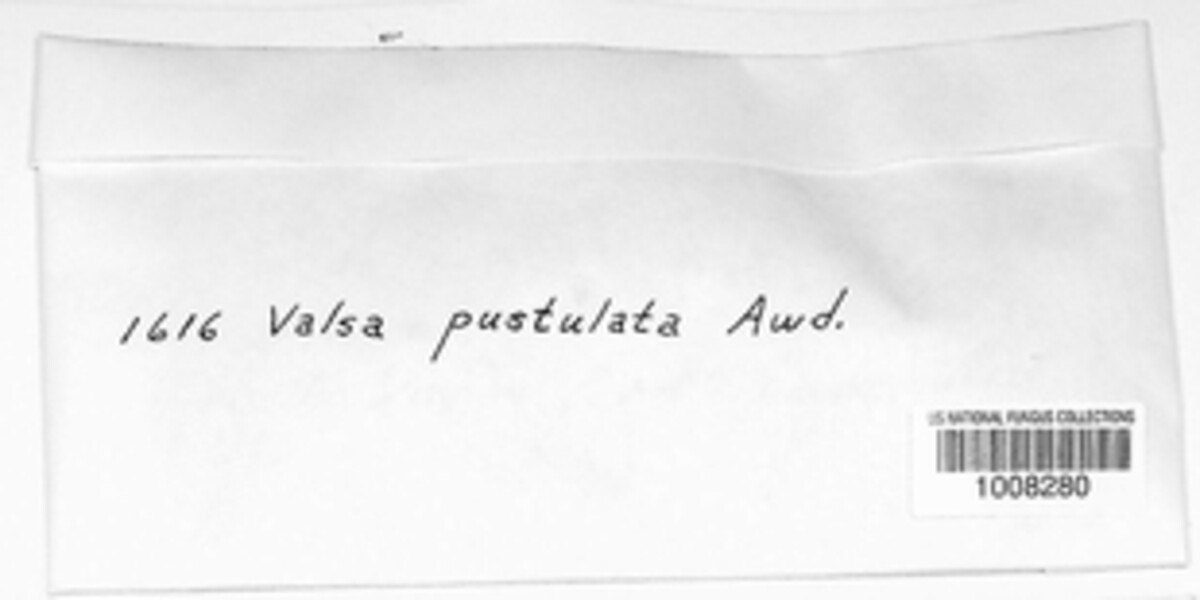 1616 Valsa pustulata Awd.
US NATIONAL FUNGUS COLLECTIONS
1008280